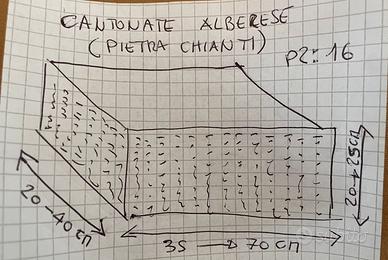 CANTONATE ALBERESE
(PIETRA CHIANTI)
PZ: 16
20→25CM
20-40 CM
35 → 70 CM
subito